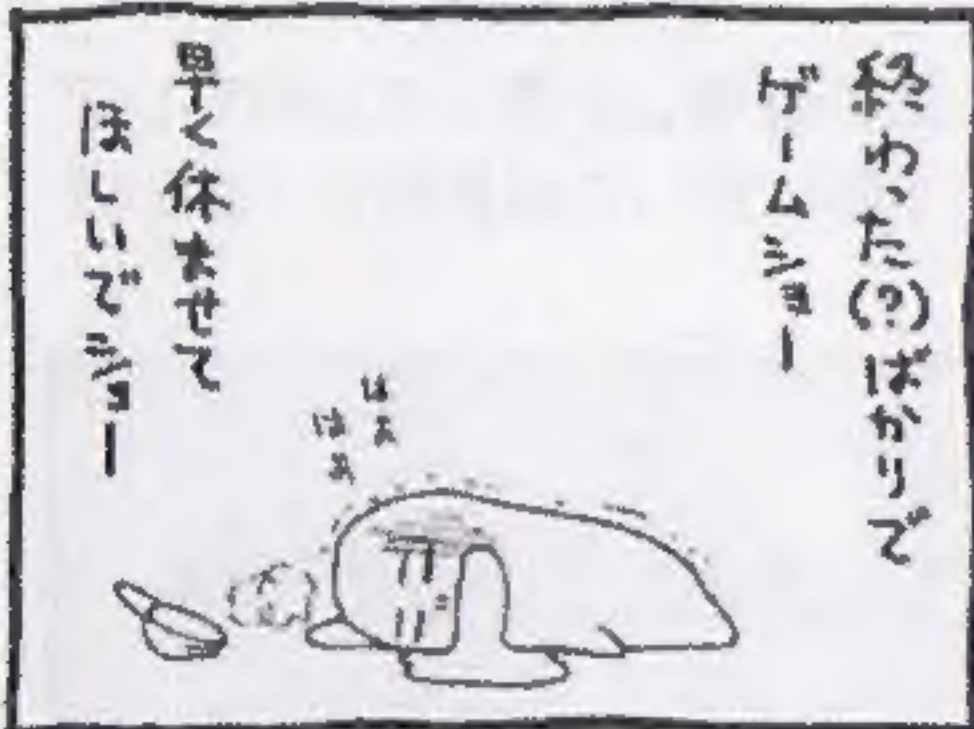 終わった(?)ばかりで
ゲームショー
早く休ませて
ほしいでショー
はぁ
はぁ